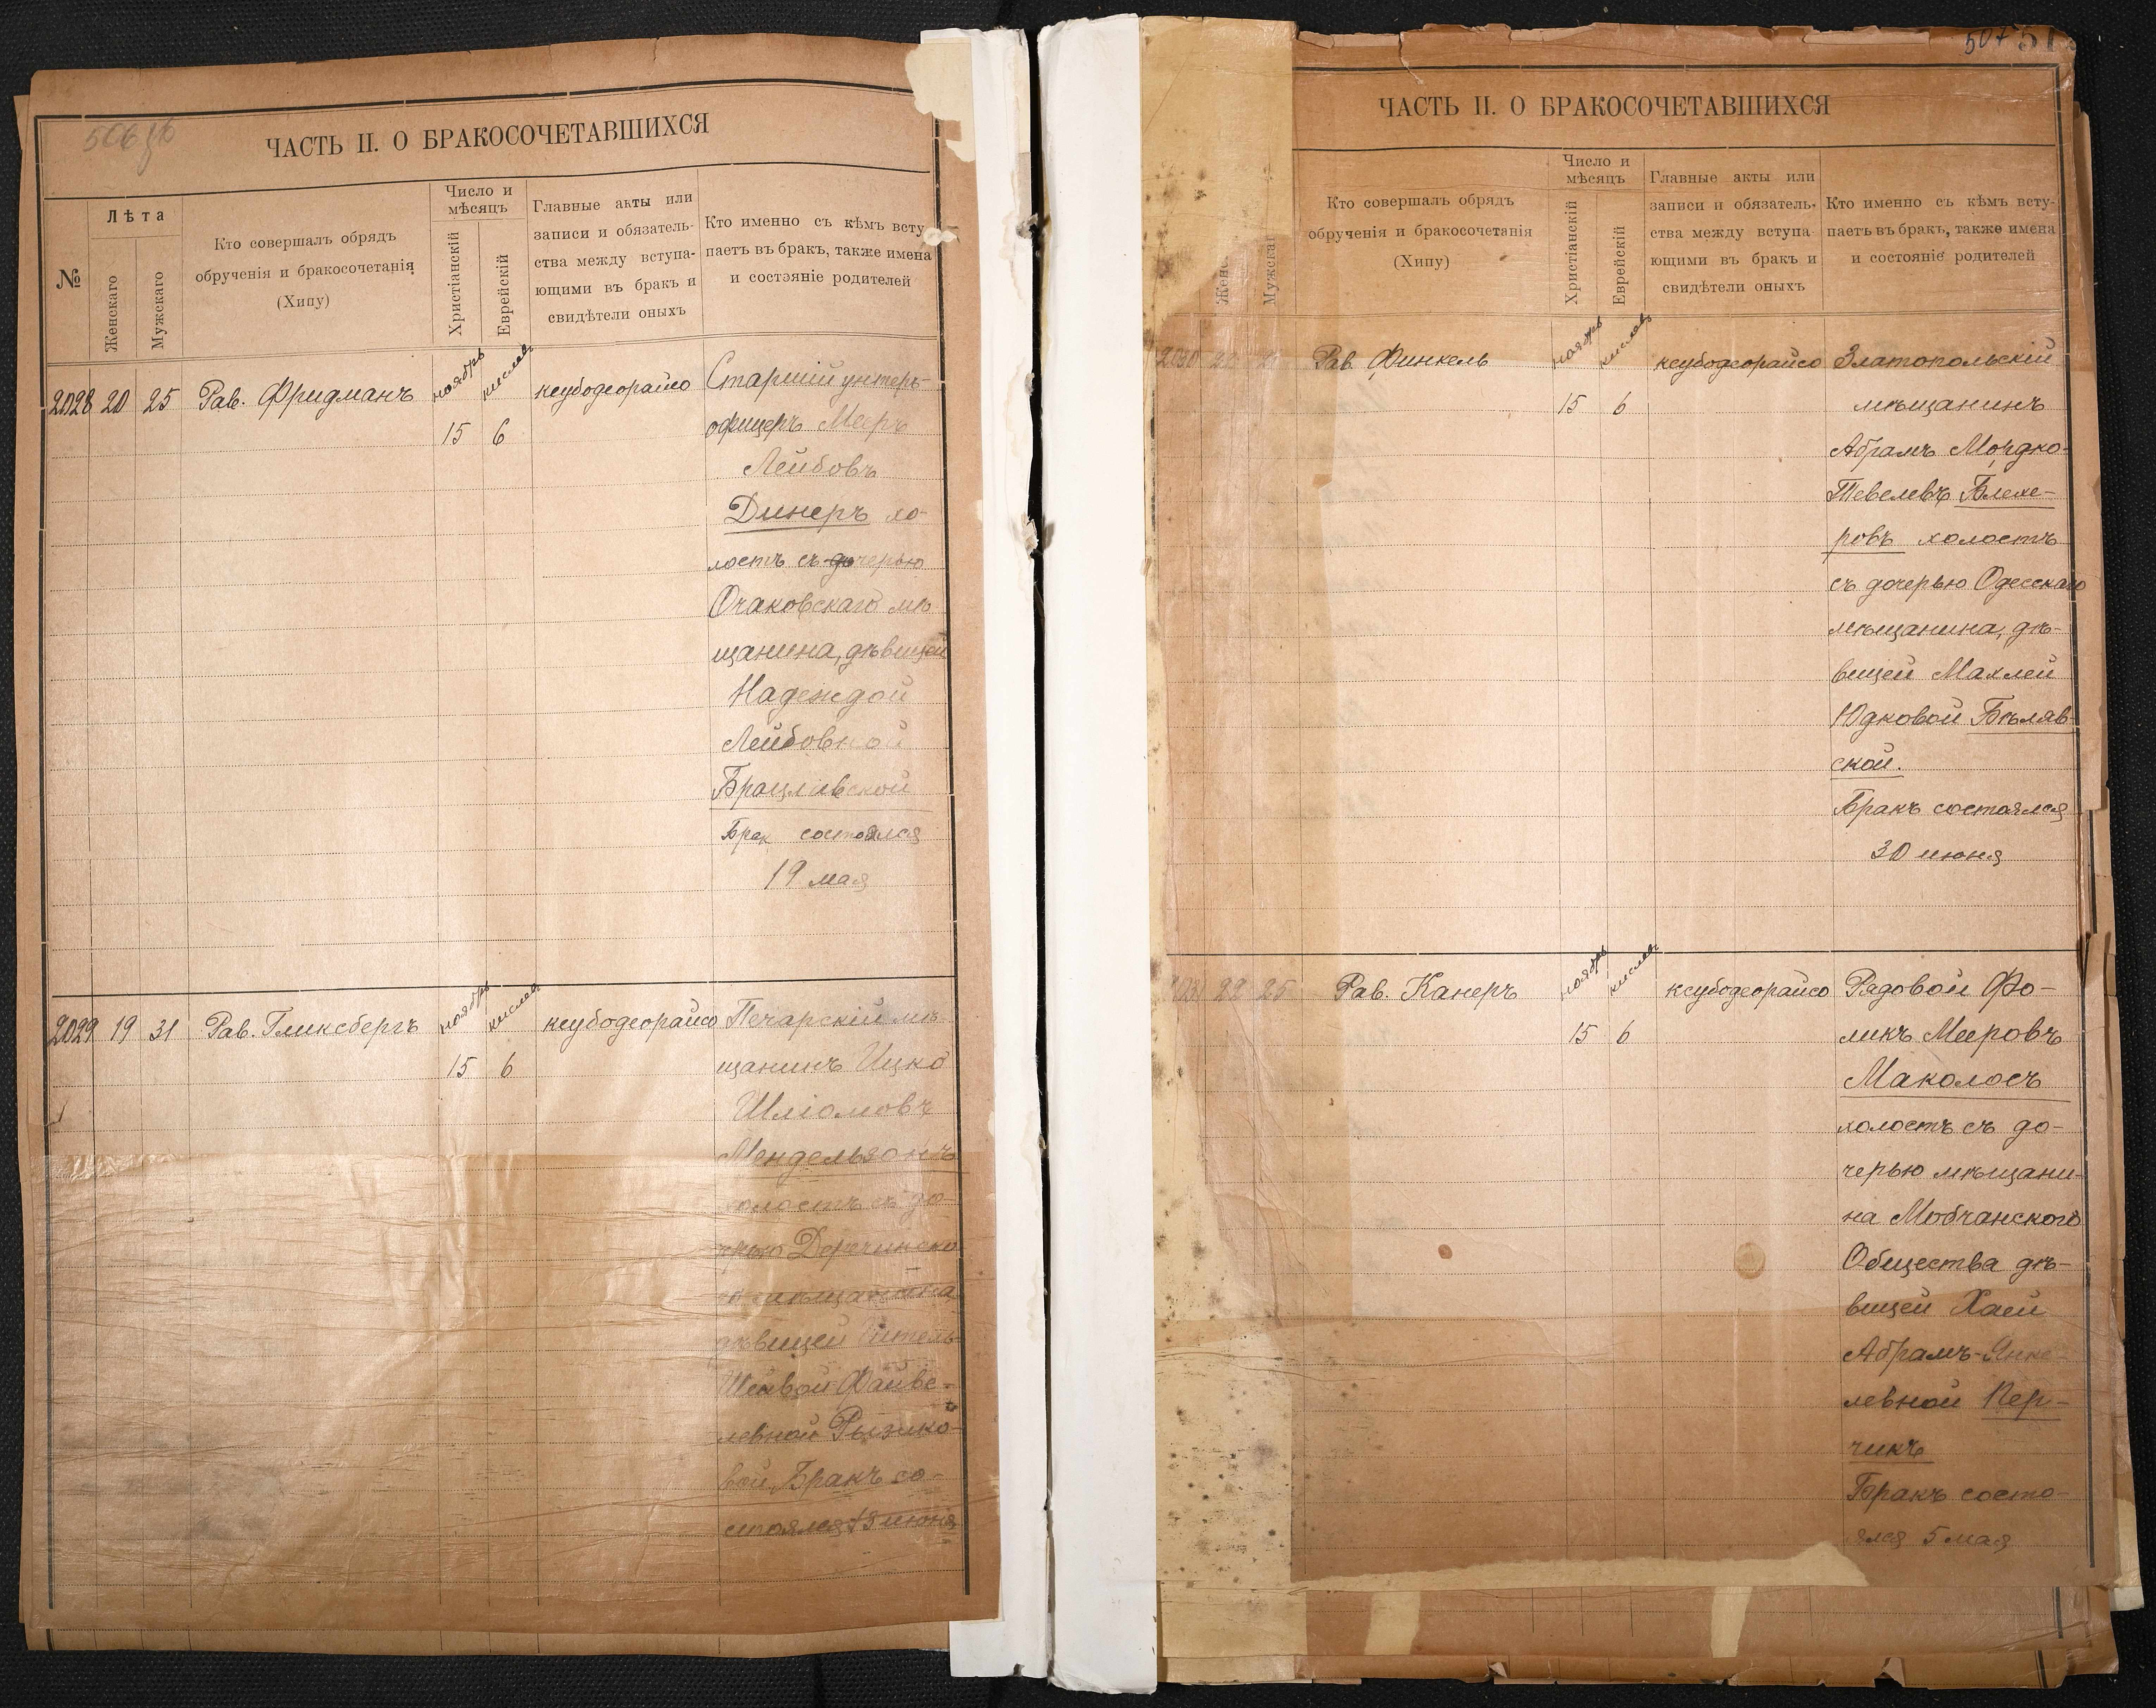 ЧАСТЬ II. О БРАКОСОЧЕТАВШИХСЯ
№
Лѣта
Женскаго
Мужскаго
Кто совершалъ обрядъ
обрученія и бракосочетанія
(Хипу)
Число и
мѣсяцъ
Христіанскій
Еврейскій
Главные акты или
записи и обязатель-
ства между вступа-
ющими въ бракъ и
свидѣтели оныхъ
Кто именно съ кѣмъ всту
паетъ въ бракъ, также имена
и состояніе родителей
2028 20 25 Рав. Фридманъ
ноябрь кислевъ
15 6
ксубодеорайсо
Старшій унтеръ-
офицеръ Мееръ
Лейбовъ
Динеръ хо-
лостъ съ дочерью
Очаковскаго мѣ
щанина, дѣвицей
Надеждой
Лейбовной
Брацлавской
Брак состоялся
19 мая
2029 19 31 Рав. Гликсбергъ
ноябрь кислев
15 6
ксубодеорайсо
Печарскій мѣ-
щанинъ Ицко
Шліомовъ
Мендельзонъ
холостъ съ до-
черью
мѣщанина
дѣвицей
Файве-
левной Рызико-
вой Бракъ со-
стоялся июня
ЧАСТЬ II. О БРАКОСОЧЕТАВШИХСЯ
Жен
Мужскаг
Кто совершалъ обрядъ
обрученія и бракосочетанія
(Хипу)
Число и
мѣсяцъ
Христіанскій
Еврейскій
Главные акты или
записи и обязатель-
ства между вступа
ющими въ бракъ и
свидѣтели оныхъ
Кто именно съ кѣмъ всту-
паетъ въ бракъ, также имена
и состояніе родителей
2030 Рав. Финкель
ноябрь кислевъ
15 6
ксубодеорайсо
Златопольскій
мѣщанинъ
Абрамъ Мордко-
Тевелевъ Блехе-
ровъ холостъ
съ дочерью Одесскаго
мѣщанина, дѣ-
вицей Махлей
Юдковой Бѣляв-
ской.
Бракъ состоялся
30 июня
22 25 Рав. Канеръ
ноябрь кислев
15 6
ксубодеорайсо
Рядовой Фо-
ликъ Мееровъ
Маколосъ
холостъ съ до-
черью мѣщани-
на
Общества дѣ-
вицей Хаей
Абрамъ-Янке-
левной Пер-
чикъ
Бракъ состо-
ялся 5 мая